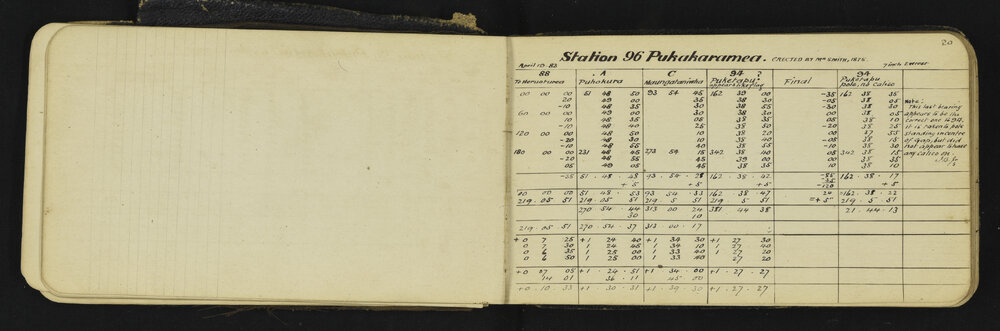 20
Station 96 Pukakaramea. ERECTED BY Mr SMITH, 1875.
April 19. 83 7 inch
88 A C 94 ? Final 94
Puhokura Maungataniwha Puketapu Puketapu
pole, no calico
00 00 00 51 48 50 93 54 45 162 39 00 -35 162 38 35
20 49 00 35 38 30 -05 38 05
-10 48 35 30 38 55 -30 38 30
60 00 00 49 00 30 38 00 00 38 05
10 48 35 05 38 35 -05 38 10
-10 48 40 25 38 50 -20 38 25
120 00 00 48 50 10 38 20 00 37 55
-20 48 30 10 38 40 -05 38 15
-10 48 55 40 38 55 -08 38 30
180 00 00 231 48 45 273 54 15 342 38 40 05 342 38 15
-20 48 55 45 39 00 00 38 35
05 49 05 45 38 35 10 38 10
Note:
This last bearing
appears to be the
correct one to 94.
it is taken to pole
standing in centre
of gap, but did
not appear to have
any calico on
-35 51 . 48 . 48 93 . 54 . 28 162 . 38 . 42 -85 162 . 38 . 17
+ 5 + 5 + 5 -35 + 5
-120
00 00 00 51 . 48 . 53 93 . 54 . 33 162 . 38 . 47 24 =162 . 38 . 22
219 . 05 . 51 219 . 05 . 51 219 . 5 . 51 219 . 5 . 51 = + 5 219 . 5 . 51
270 . 54 . 44 313 00 24 381 44 38 21 . 44 . 13
30 10
219 . 05 . 51 270 . 54 . 37 313 . 00 . 17
+ 0 7 25 +1 24 40 +1 34 30 +1 27 30
0 7 30 1 24 45 1 34 10 1 27 40
0 6 35 1 25 00 1 33 40 1 27 20
0 6 50 1 25 00 1 33 40 1 27 20
+0 07 05 +1 . 24 . 51 +1 . 34 . 00 +1 . 27 . 27
+0 . 10 . 33 +1 . 30 . 31 +1 . 39 . 30 +1 . 27 . 27